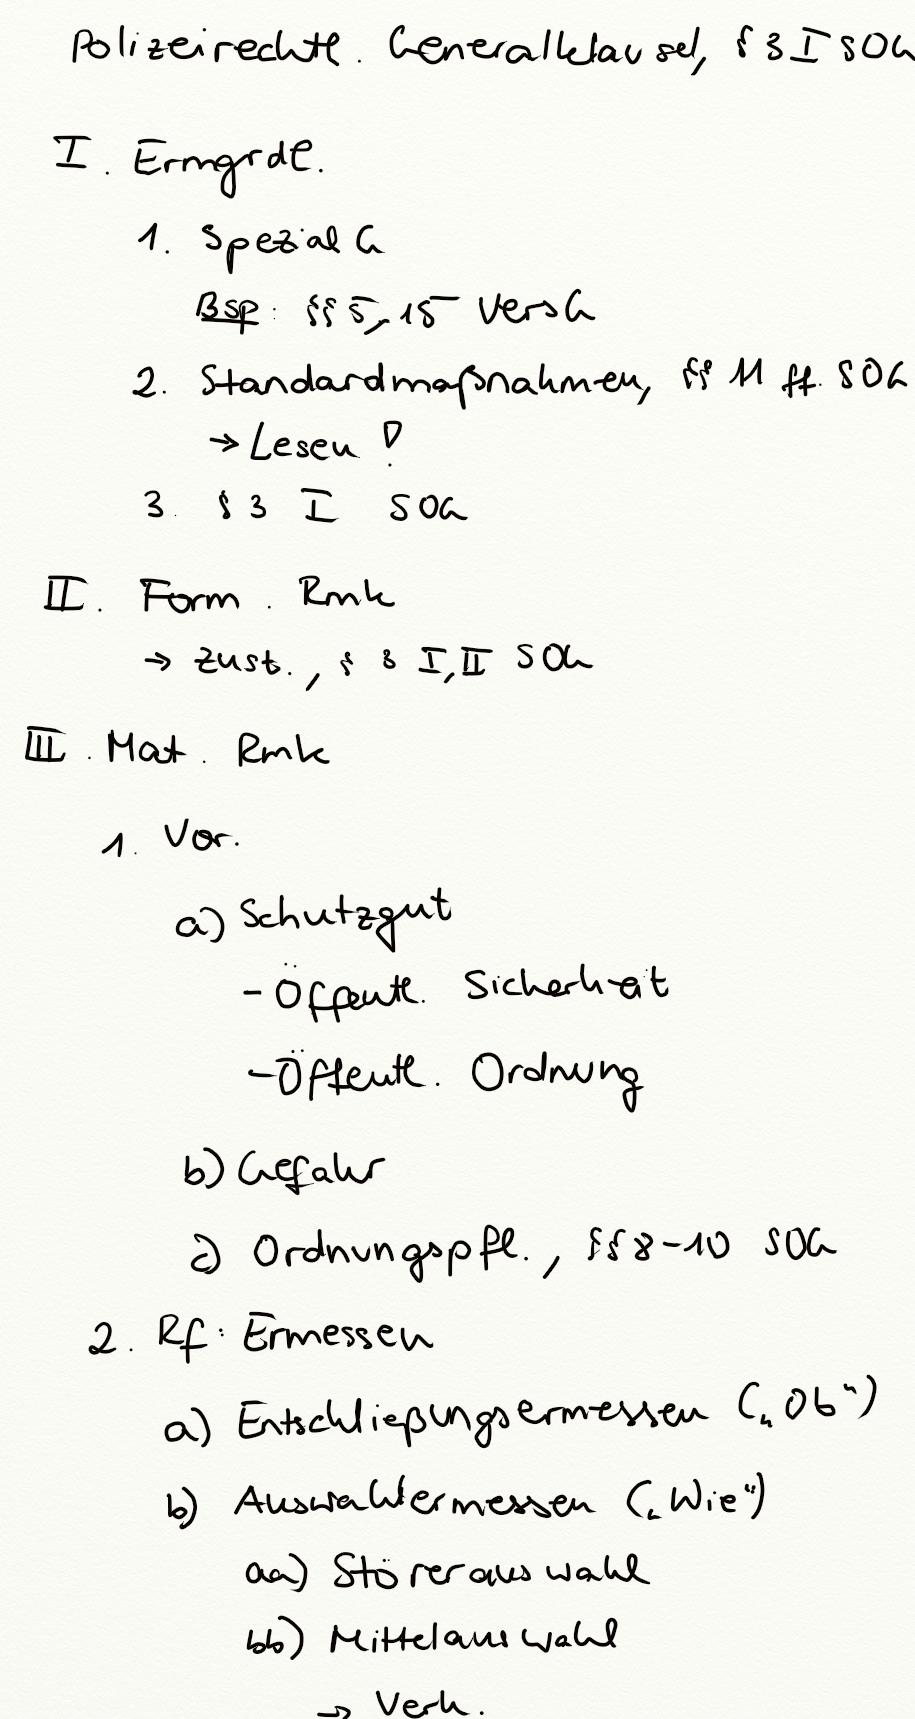 Polizeirechtl. Generalklausel, § 3 I SOG
I. Ermgrdl.
1. Spezial G
Bsp: §§ 5, 15 VersG
2. Standardmaßnahmen, §§ 11 ff. SOG
→ Lesen!
3. § 3 I SOG
II. Form. Rmk
→ Zust., § 3 I, II SOG
III. Mat. Rmk
1. Vor.
a) Schutzgut
- Öffentl. Sicherheit
- Öffentl. Ordnung
b) Gefahr
c) Ordnungspfl., §§ 8-10 SOG
2. Rf: Ermessen
a) Entschließungsermessen („Ob“)
b) Auswahlermessen („Wie“)
aa) Störerauswahl
bb) Mittelauswahl
→ Verh.